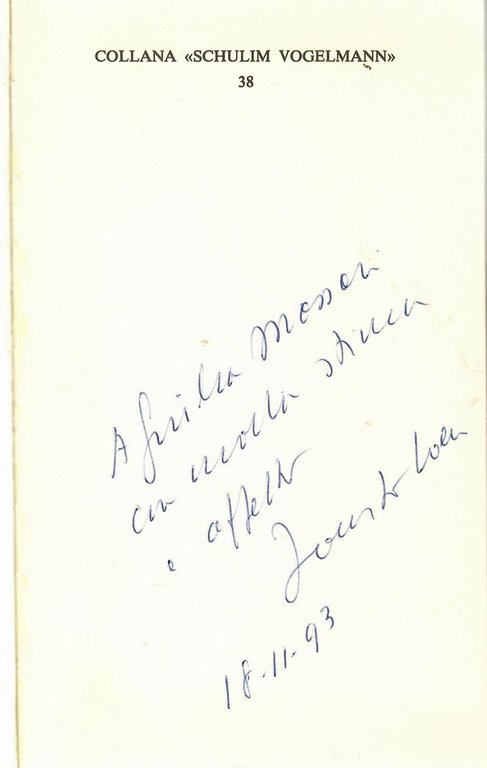 COLLANA «SCHULIM VOGELMANN»
38
A Giulia Massari
con molta stima
e affetto
18.11.93